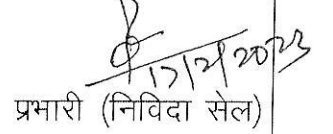 17/2/2023
प्रभारी (निविदा सेल)